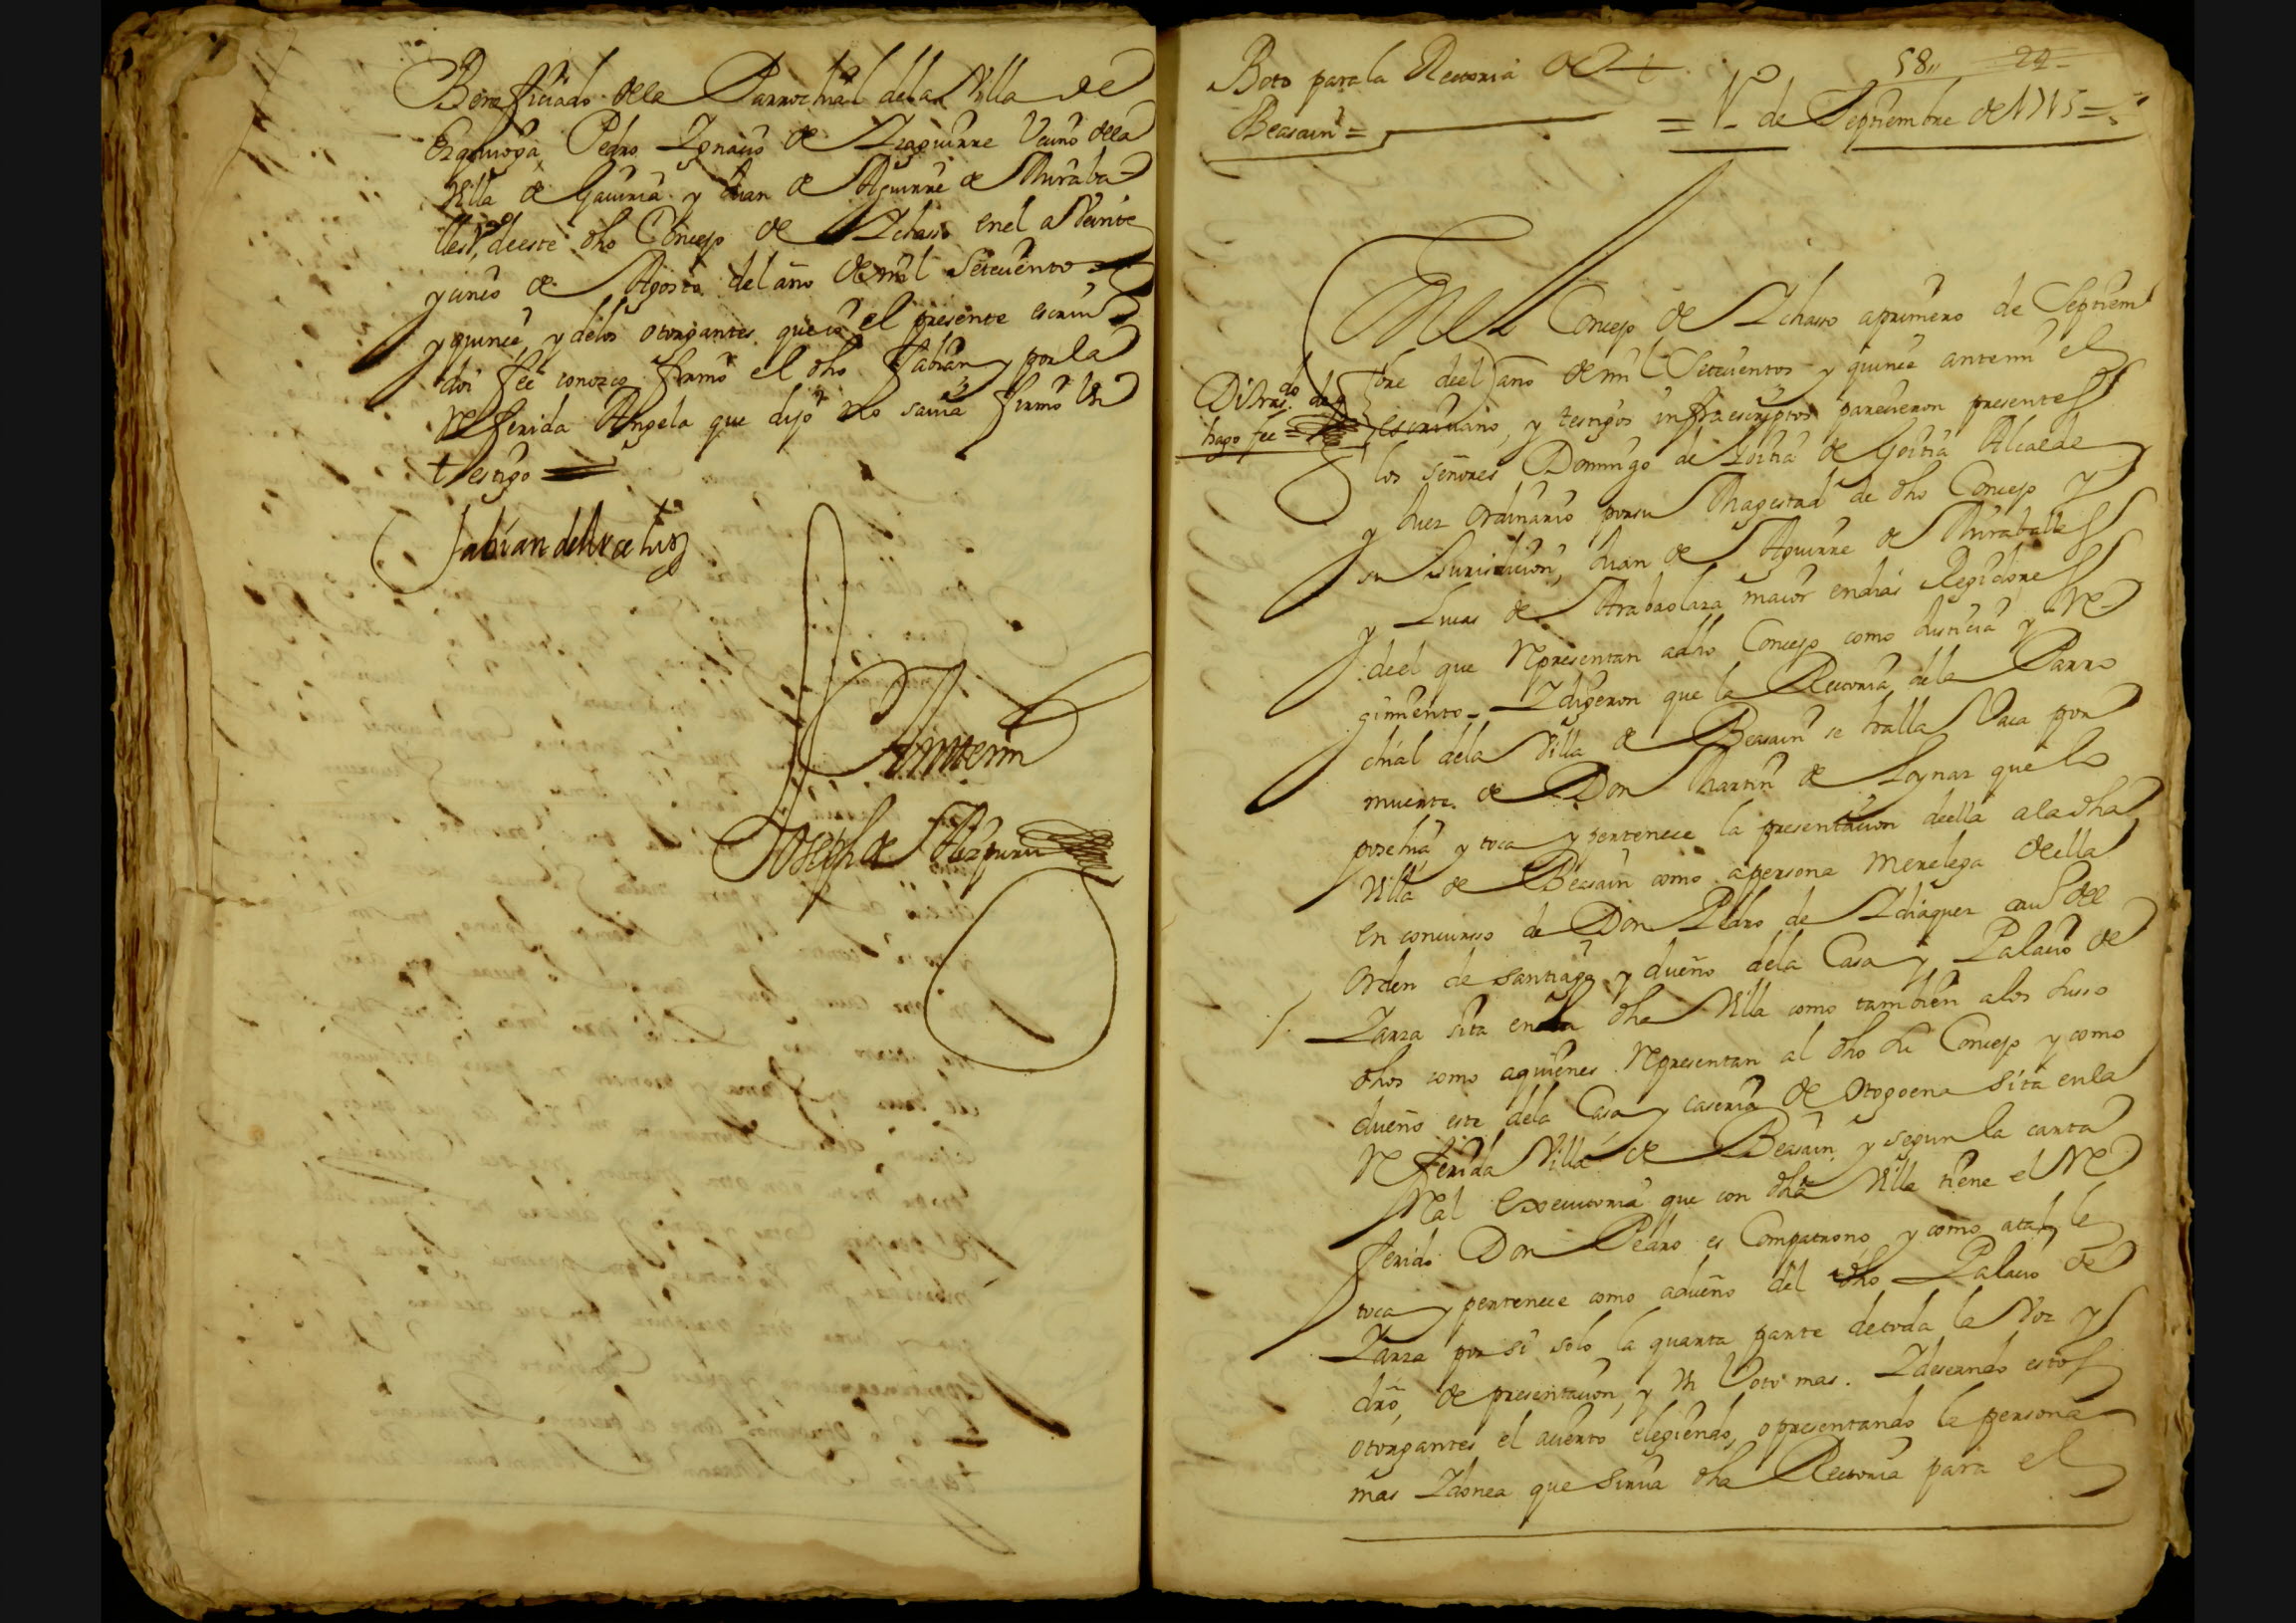 Beneficiado dela Parrochial dela Villa de
Ezquioga, Pedro Ignacio de Izaguirre Vecino dela
Villa de Gaviria y Juan de Aguirre de Miraba
lles, deeste dho Concejo de Ichasso enel a Veinte
y cinco de Agosto del año de mil Setecientos
y quince, y delos otorgantes quienes el presente escriu
doi fee conozco firmó el dho Fabian y por la
Referida Angela que dijo no savia firmó Un
testigo =
Fabian de Arcelus
Antemi
Joseph de Aizpuru
Boto para la Rectoria de
Beasain =
58,, 29
= 1º de Septiembre de 1715 =
Enel Concejo de Ichasso aprimero de Septiem
bre deel año de mil Setecientos y quince antemi el
Di tras.do de q
hago fee =
escriuano, y testigos infraescriptos parecieron presentes
los señores Domingo de Goitia de Goitia Alcalde
y Juez Ordinario porsu Magestad de dho Concejo y
su Jurisdicion, Juan de Aguirre de Miraballes
y Lucas de Arabaolaza maior endias Regidores
deel que Representan adho Concejo como Justicia y Re
gimiento - Idigeron que la Rectoria dela Parro
chial dela Villa de Beasain se halla Vaca por
muerte de Don Martin de Loynaz que la
posehia, y toca y pertenece la presentacion deella ala dha
Villa de Beasain como apersona Merelega deella
en concurso de Don Pedro de Ichaguez cau.º del
Orden de Santiago, y dueño dela Casa y Palacio de
Yarza sita enla dha Villa como tambien alos suso
dhos como aquienes Representan al dho su Concejo y como
dueño este dela Casa y caseria de Otogoena sita enla
Referida Villa de Beasain, y segun la carta
Real Executoria que con dha Villa tiene el Re
ferido Don Pedro es Compatrono, y como atal le
toca y pertenece como adueño del dho Palacio de
Yarza por si solo la quarta parte detoda la Voz y
drõ, de presentacion, y Un Voto mas. Ideseando estos
otorgantes el acierto eligiendo, o presentando la persona
mas Idonea que Sirva dha Rectoria para el